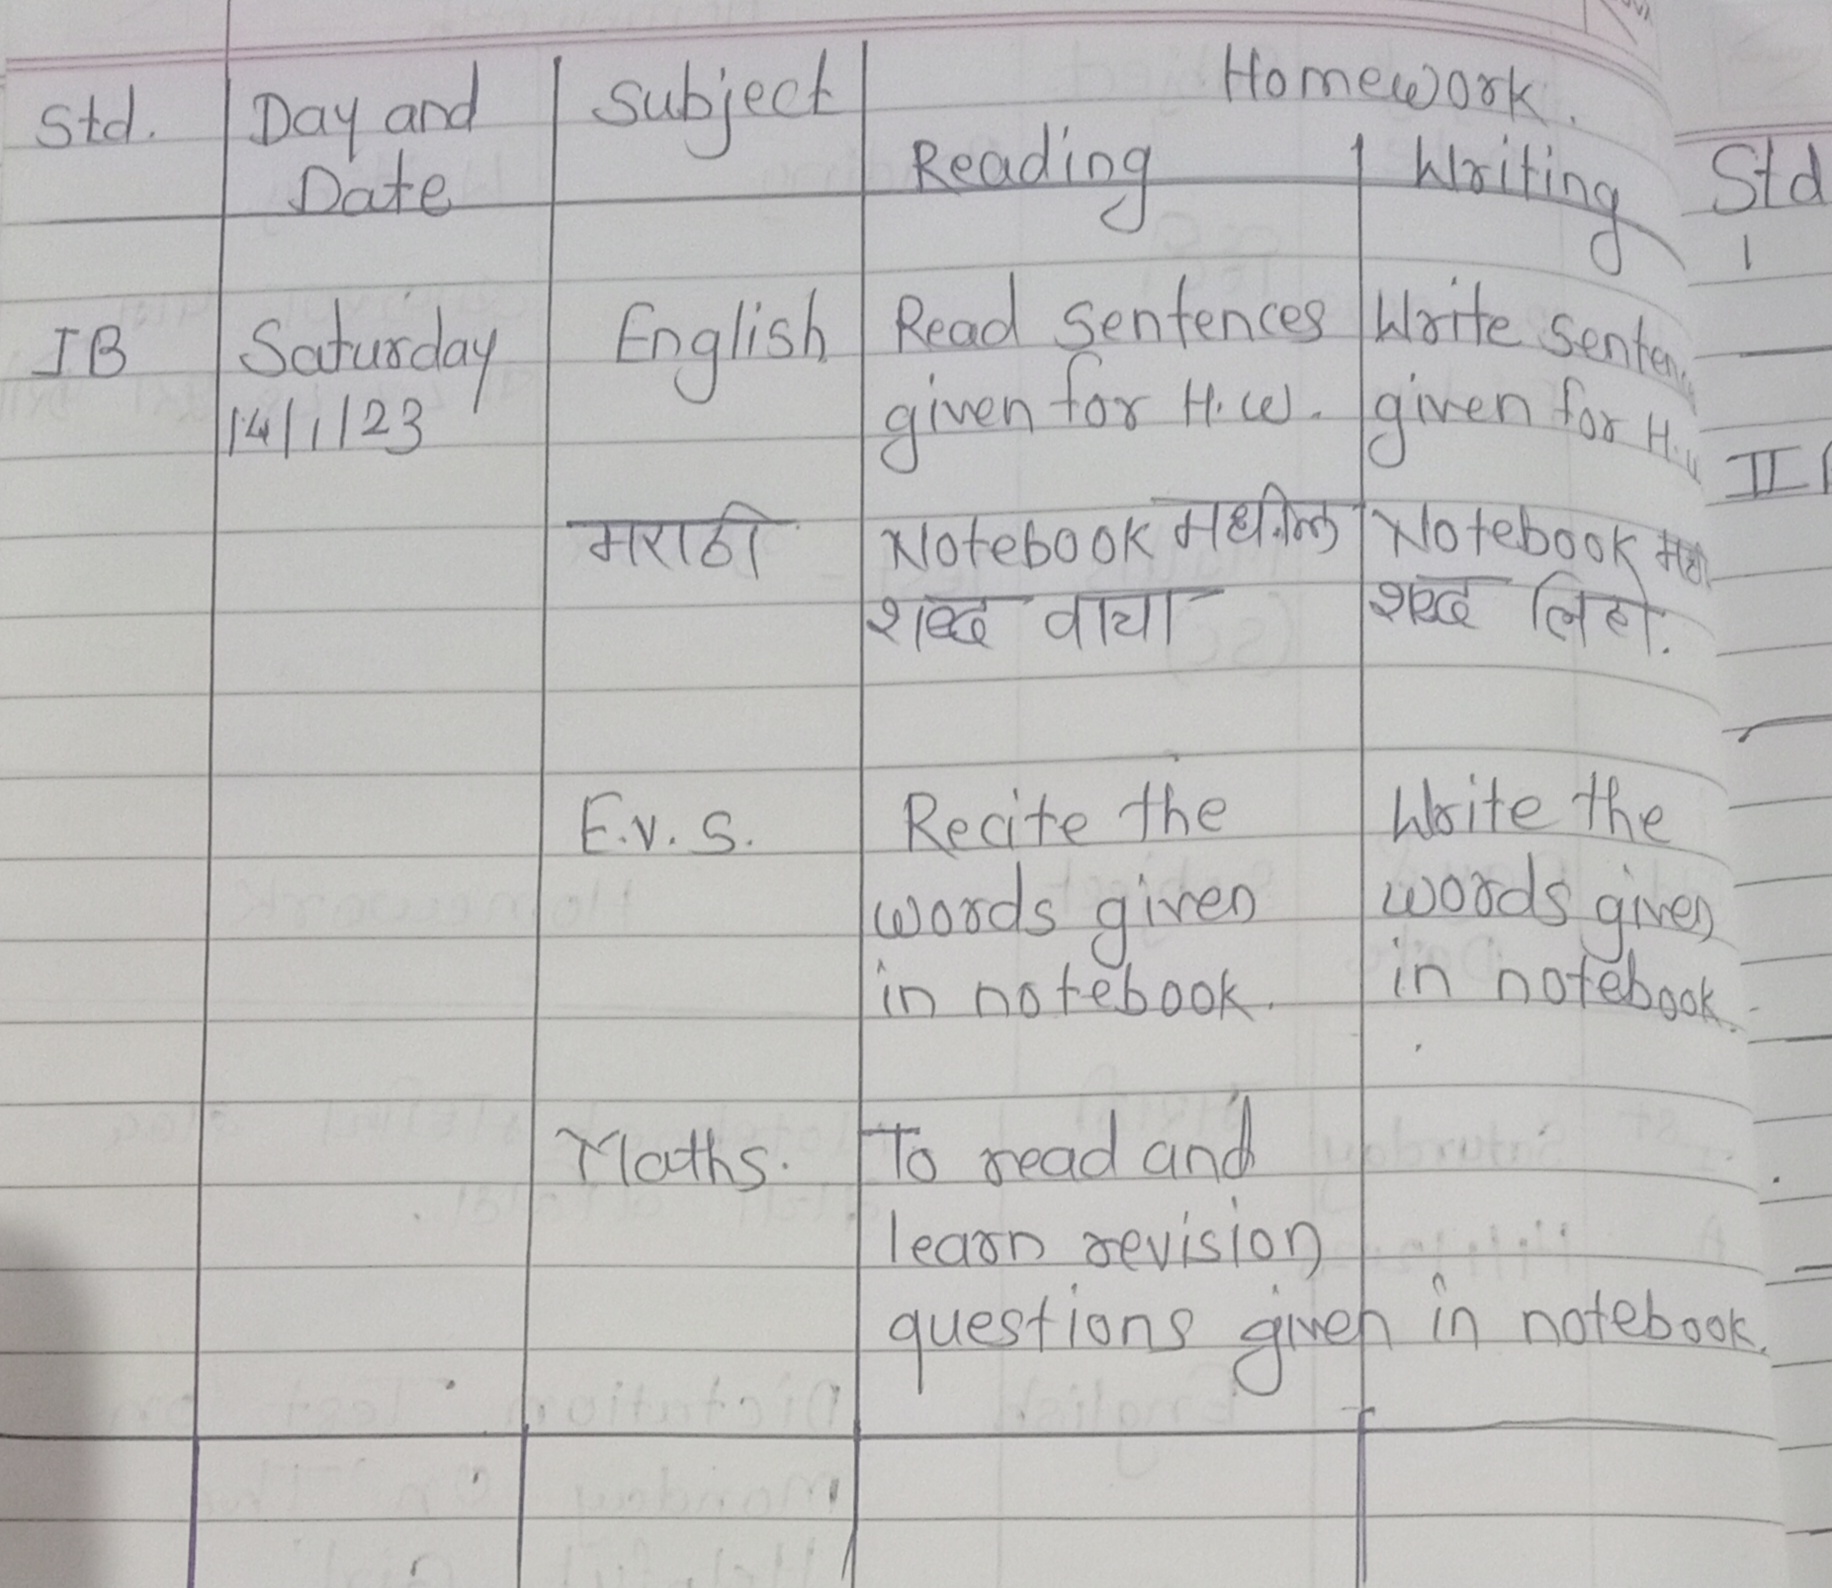 Std. Day and Subject Homework.
Date Reading Writing
IB Saturday English Read sentences Write
14/1/23 given for H.W. given for
मराठी Notebook मधील Notebook
शब्द वाचा शब्द लिहा.
E.V.S. Recite the Write the
words given words given
in notebook. in notebook.
Maths. To read and
learn revision
questions given in notebook.
Std
1
II